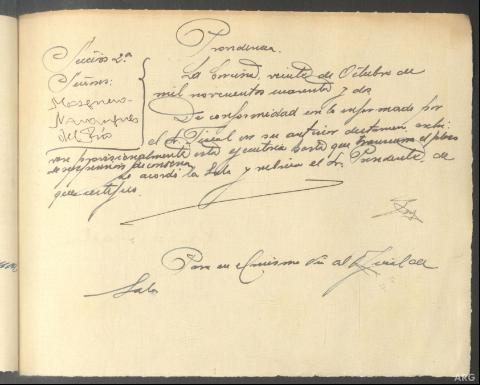 Sección 2ª
Señores:
Mosquera
Navarque
del Río
Providencia.
La Coruña, veinte de Octubre de
mil novecientos cuarenta y dos
De conformidad con lo informado por
el Sr. Fiscal en su anterior dictamen, archi
vese provisionalmente esta ejecutoria hasta que transcurra el plazo
de suspensión de condena
Lo acordó la Sala y rubrica el Sr. Presidente, de
que certifico
Pasa en el mismo día al Fiscal de
Sala
ARG